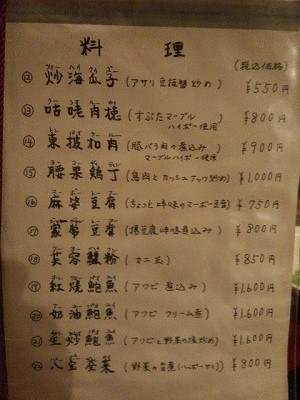 料理
(税込価格)
⑫ 炒海瓜子 (アサリ豆鼓醤炒め) ¥550
⑬ 咕咾肉 (すぶたマーブル
ハイポー使用) ¥800
⑭ 東坡扣肉 (豚バラ肉の煮込み)
マーブルハイポー使用 ¥900
⑮ 腰果鶏丁 (鶏肉とカシュナッツ炒め) ¥1,000
⑯ 麻婆豆腐 (ちょっと辛味のマーボー豆腐) ¥750
⑰ 家常豆腐 (揚豆腐辛味煮込み) ¥800
⑱ 芙蓉蟹粉 (カニ玉) ¥850
⑲ 紅焼鮑魚 (アワビ煮込み) ¥1,600
⑳ 奶油鮑魚 (アワビクリーム煮) ¥1,600
㉑ 生炒鮑魚 (アワビと野菜の塩炒め) ¥1,600
㉒ 八宝 菜 (野菜の旨煮(ハッポーサイ)) ¥800